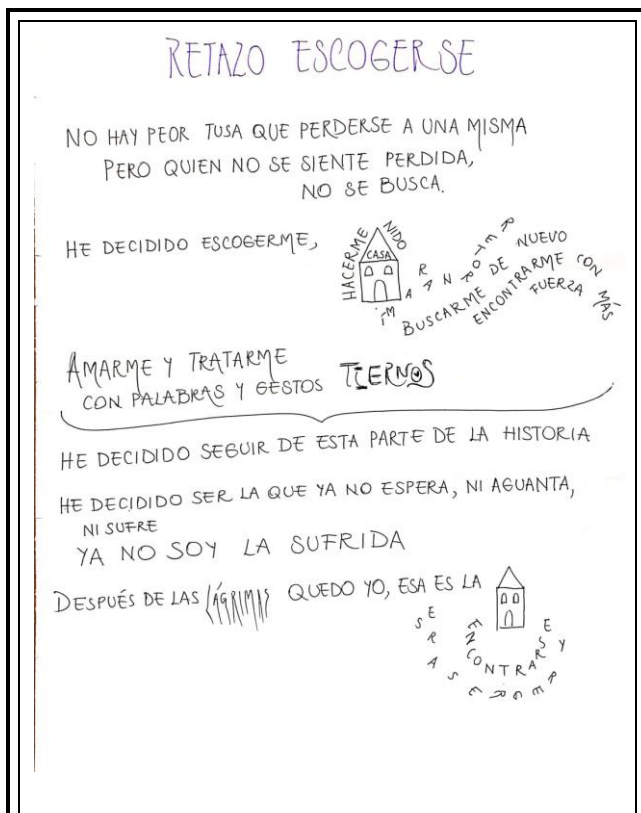 RETAZO ESCOGERSE
NO HAY PEOR TUSA QUE PERDERSE A UNA MISMA
PERO QUIEN NO SE SIENTE PERDIDA,
NO SE BUSCA.
HE DECIDIDO ESCOGERME,
HACERME
NIDO
CASA
RETORNAR A MÍ
BUSCARME DE NUEVO
ENCONTRARME CON MÁS
FUERZA
AMARME Y TRATARME
CON PALABRAS Y GESTOS TIERNOS
HE DECIDIDO SEGUIR DE ESTA PARTE DE LA HISTORIA
HE DECIDIDO SER LA QUE YA NO ESPERA, NI AGUANTA,
NI SUFRE
YA NO SOY LA SUFRIDA
DESPUÉS DE LAS LÁGRIMAS QUEDO YO, ESA ES LA
ENCONTRARSE
Y REGRESARSE